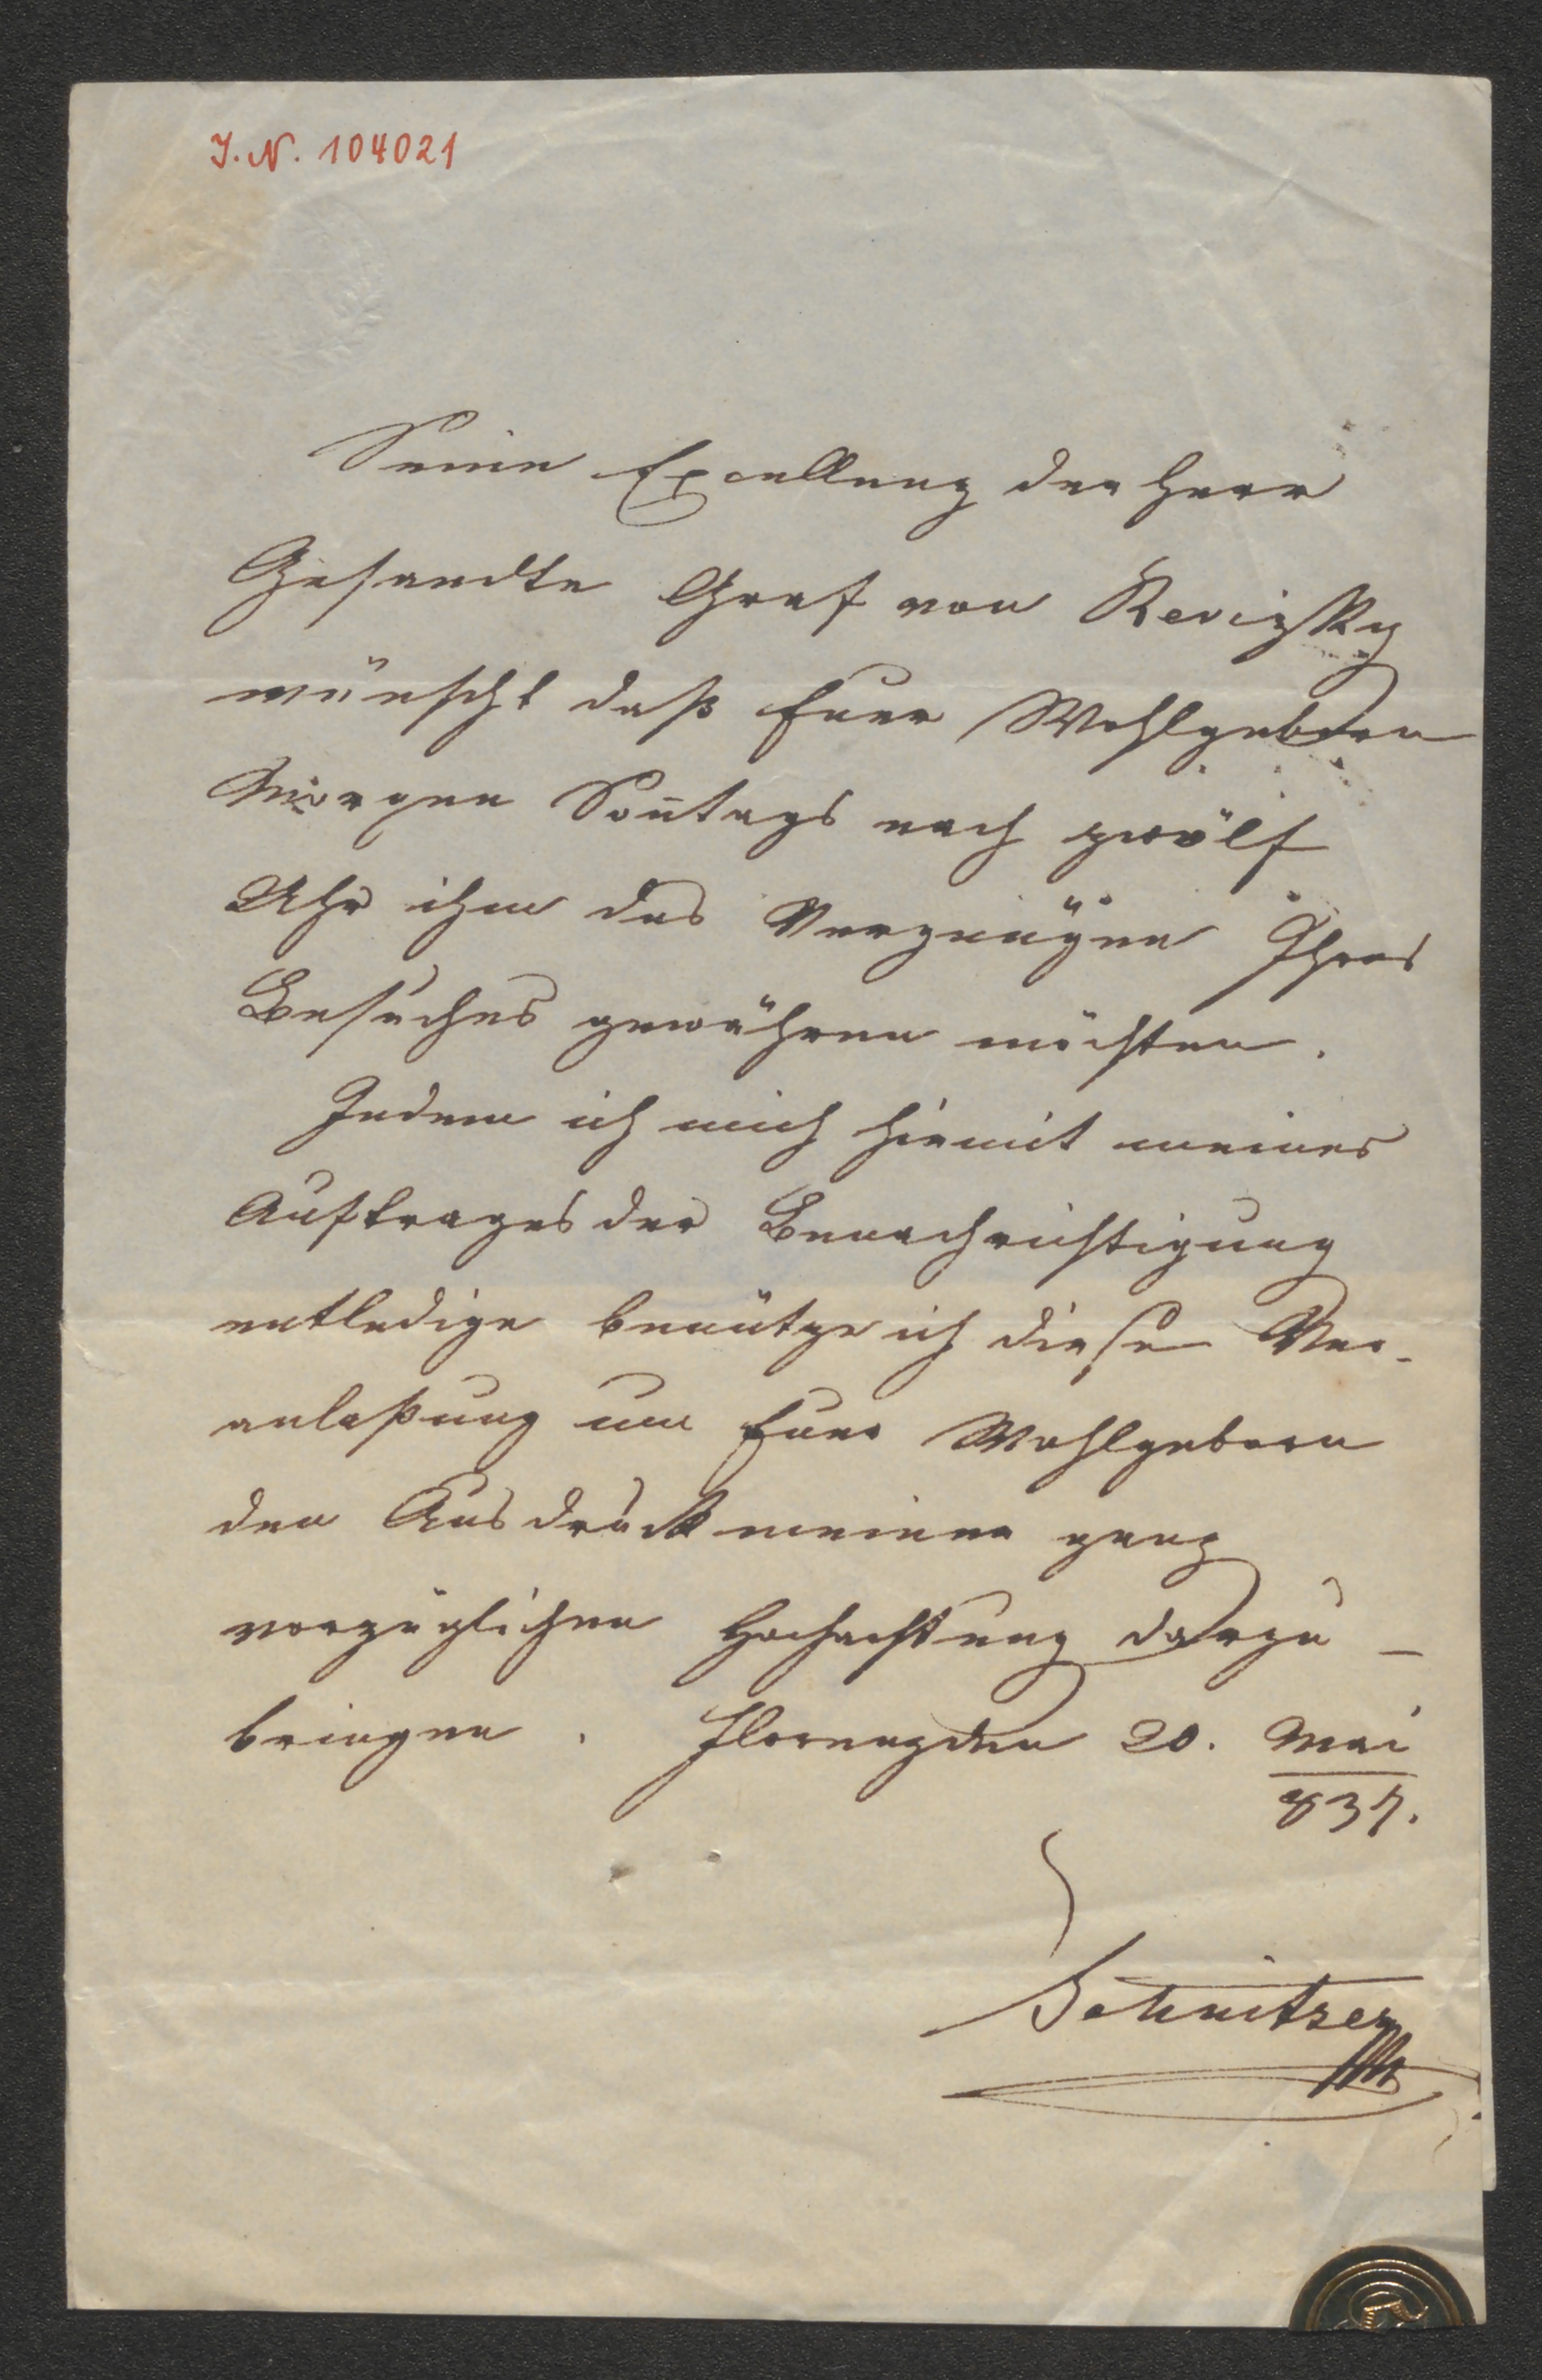 I. N. 104021
Seine Excellenz der Herr
Gesandte Graf von Revizky
wünscht daß Euer Wohlgeboren
Morgen Soñtags nach zwölf
Uhr ihm das Vergnügen Ihres
Besuches gewähren möchten.
Indem ich mich hiemit meines
Auftrages der Benachrichtigung
entledige benütze ich diese Ver-
anlaßung um Euer Wohlgeboren
den Ausdruck meiner ganz
vorzüglichen Hochachtung darzu-
bringen. Florenz den 20. Mai
837.
Schnitzer